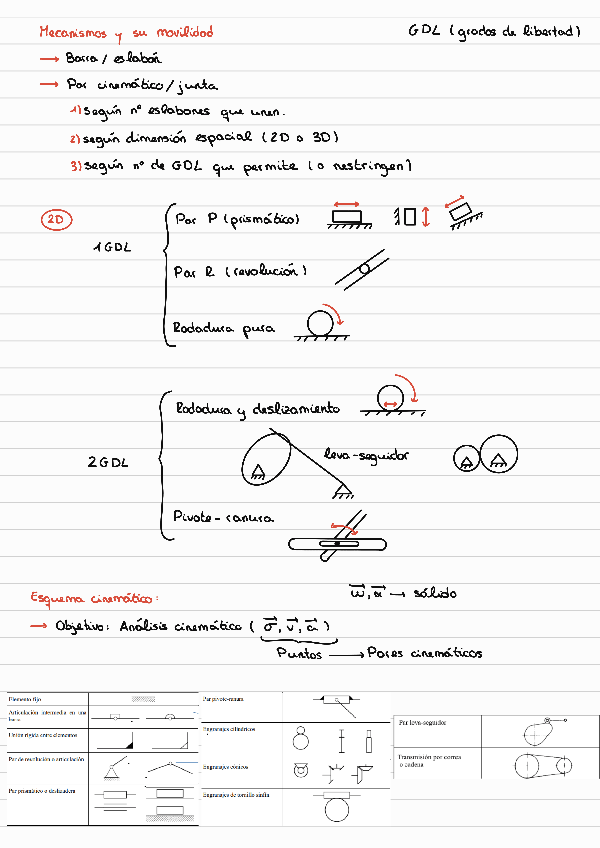 Mecanismos y su movilidad
GDL (grados de libertad)
→ Barra / eslabón
→ Par cinemático / junta
1) según nº eslabones que unen.
2) según dimensión espacial (2D o 3D)
3) según nº de GDL que permite (o restringen)
2D
1 GDL
Par P (prismático)
Par R (revolución)
Rodadura pura
2 GDL
Rodadura y deslizamiento
leva-seguidor
Pivote-ranura
Esquema cinemático:
ω, α → sólido
→ Objetivo: Análisis cinemático (r, v, a)
Puntos → Pares cinemáticos
Elemento fijo
Articulación intermedia en una
barra
Unión rígida entre elementos
Par de revolución o articulación
Par prismático o deslizadera
Par pivote-ranura
Engranajes cilíndricos
Engranajes cónicos
Engranajes de tornillo sinfín
Par leva-seguidor
Transmisión por correa
o cadena